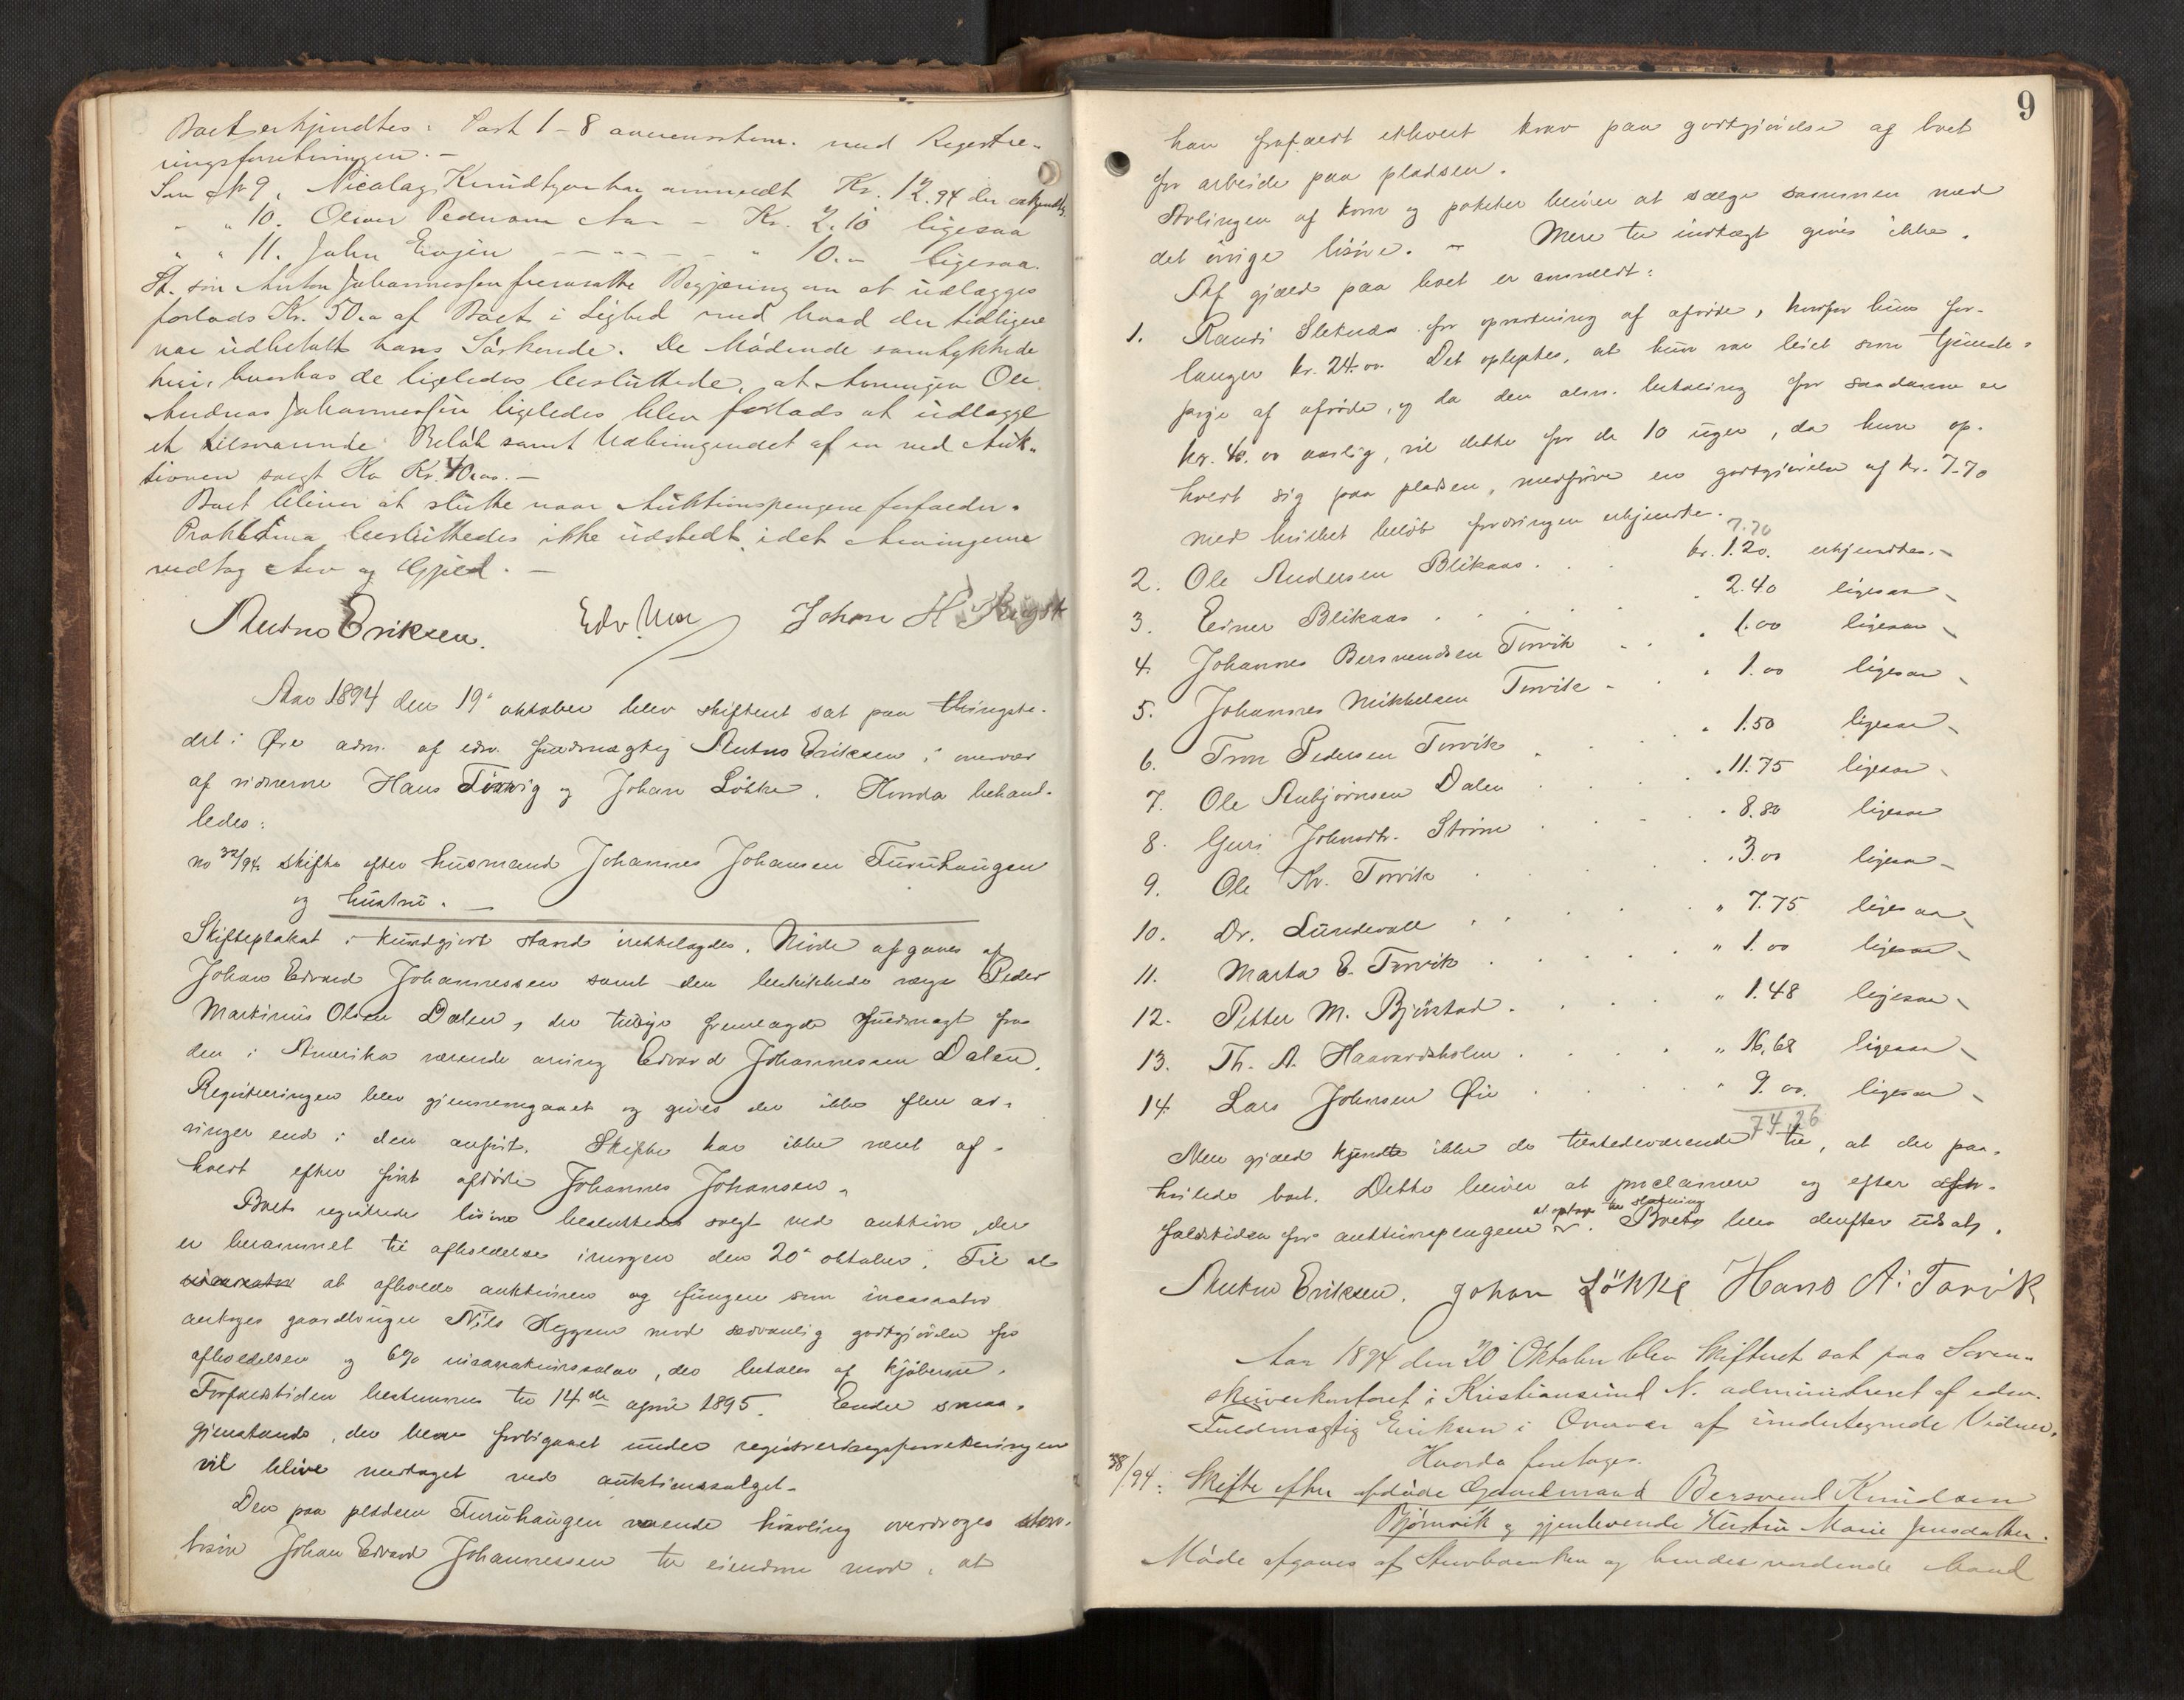 Post 1-8 med Registre-
ringsforretningen. -
Som No 9. Nicolay Knudtzon har anmeldt Kr. 12.94 der erkjendtes
" " 10. Oliver - Kr. 2.10 ligesaa
" " 11. John - - - - - " 10.- ligesaa.
søn Anton Johannessen fremsatte Begjæring om at udlægges
forlods Kr. 50.- af Boet i Lighed med hvad der tidligere
var udbetalt hans Söskende. De Mödende samtykkede
heri, hvorhos de ligeledes besluttede, at Arvingen Ole
Andreas Johannessen ligeledes blev forlods at udlægge
et tilsvarende Belöb samt Udbringendet af en ved Auk-
tionen solgt Ko Kr. 40.00. -
Boet bliver at slutte naar Auktionspengene forfalder.
Proklama besluttedes ikke udstedt, idet Arvingerne
vedtog Arv og Gjæld. -
Eriksen. Johan H
Aar 1894 den 19' oktober blev skifteret sat paa thingste-
det i Øre adm. af edsv. fuldmægtig Eriksen i overvær
af vidnerne Hans Torvig og Johan Lökke. Hvorda behand-
ledes:
no 32/94. skifte efter husmand Johannes Johansen Furuhaugen
og hustru. -
Skifteplakat i kundgjort stand irettelagdes. Möde afgaves af
Johan Edvard Johannessen samt den beskikkede værge Peder
Martinus Olsen Dalen, der tillige fremlagde fuldmagt fra
den i Amerika værende arving Edvard Johannessen Dalen.
Registreringen blev gjennemgaaet og gives der ikke flere ar-
vinger end i den anført. Skifte har ikke været af-
holdt efter först afdöde Johannes Johansen.
Boets registrede lösöre besluttedes solgt ved auktion, der
er berammet til afholdelse imorgen den 20' oktober. Til at
at afholde auktionen og fungere som incassator
antoges gaardbruger Nils Heggem mod sedvanlig godtgjörelse for
afholdelsen og 6% incassationssalær, der betales af kjöberne.
Forfaldstiden bestemmes til 14de april 1895. Endel smaa-
gjenstande, der blev forbigaaet under registreringsforretningen
vil blive medtaget ved auktionssalget.
Den paa pladsen Furuhaugen værende höavling overdroges
Johan Edvard Johannessen til eiendom mod, at
9
han frafaldt ethvert krav paa godtgjörelse af boet
for arbeide paa pladsen.
Avlingen af korn og poteter bliver at sælge sammen med
det övrige lösöre. - Mere til indtægt gives ikke.
Af gjæld paa boet er anmeldt:
1. Randi Sletnes for opvartning af afdöde, hvorfor hun for-
langer kr. 24.00. Det oplystes, at hun var leiet som tjeneste-
pige af afdöde, og da den alm. betaling for saadanne er
kr. 40.00 aarlig, vil dette for de 10 uger, da hun op-
holdt sig paa pladsen, medföre en godtgjörelse af kr. 7.70
med hvilket belöb fordringen erkjendte.
7.70
2. Ole Andersen Blikaas . . kr. 1.20. erkjendtes. -
3. Einer Blikaas . . . . " 2.40 ligesaa -
4. Johannes Bersvendsen Torvik . . " 1.00 ligesaa -
5. Johannes Mikkelsen Torvik - . " 1.00 ligesaa -
6. Tron Pedersen Torvik . . . " 1.50 ligesaa -
7. Ole Anbjörnsen Dalen . . . " 11.75 ligesaa -
8. Guri Johnsdtr. Ström . . . " 8.80 ligesaa
9. Ole Kr. Torvik . . . " 3.00 ligesaa -
10. Dr. Lundevall . . . . " 7.75 ligesaa -
11. Marta E. Torvik . . . . " 1.00 ligesaa -
12. Petter M. Bjerkestad . . . . " 1.48 ligesaa -
13. Th. A. Haavardsholm . . . . " 16.68 ligesaa -
14. Lars Johnsen Øre . . . . " 9.00. ligesaa -
74.26
Mere gjæld kjendte ikke de tilstedeværende til, at der paa-
hvilede boet. Dette bliver at proclamere og efter for-
faldstiden for auktionspengene at optage til slutning. Boet blev derefter udsat.
Eriksen. Johan Lökke Hans A. Torvik
Aar 1894 den 20 Oktober blev Skifteret sat paa Soren-
skriverkontoret i Kristiansund N. administreret af edsv.
Fuldmægtig Eriksen i Overvær af undertegnede Vidner.
Hvorda foretoges.
38/94: Skifte efter afdöde Gaardmand Bersvend Knudsen
Bjørnvik og gjenlevende Hustru Marie Jensdatter.
Möde afgaves af Stervboenken og hendes vordende Mand